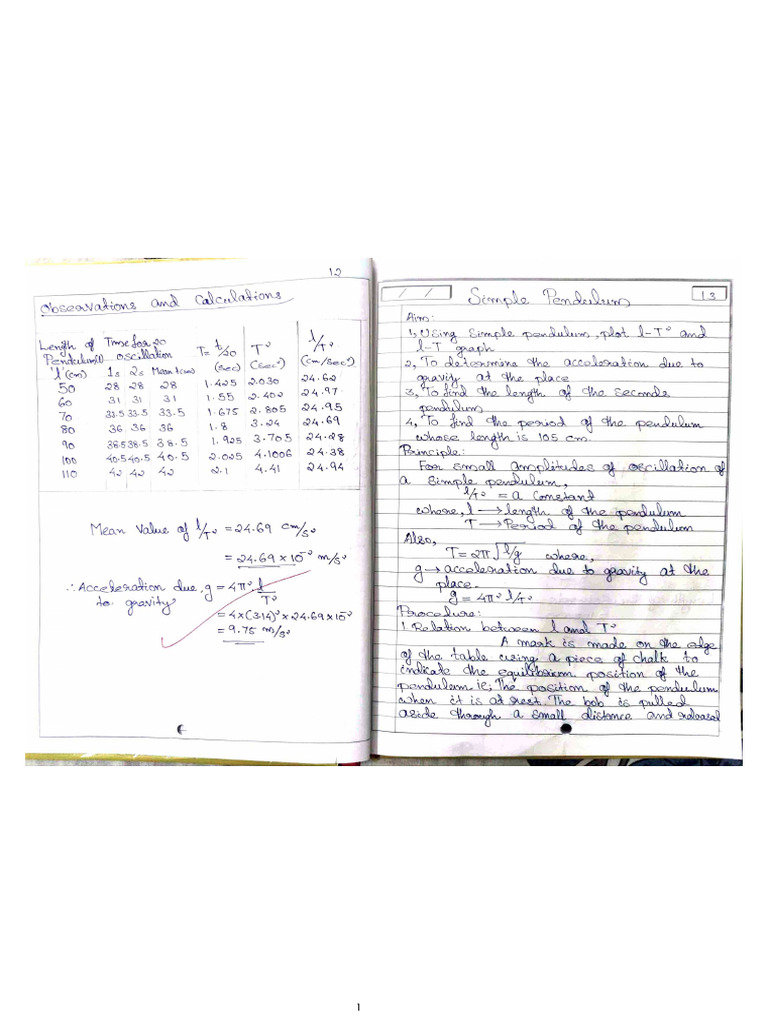 12
Observations and Calculations
Length of Pendulum(l) 'l'(cm) | Time for 20 oscillation 1s 2s Mean t(s) | T= t/20 (sec) | T² (sec²) | l/T² (cm/sec²)
50 28 28 28 1.425 2.030 24.62
60 31 31 31 1.55 2.402 24.97
70 33.5 33.5 33.5 1.675 2.805 24.95
80 36 36 36 1.8 3.24 24.69
90 38.5 38.5 38.5 1.925 3.705 24.28
100 40.5 40.5 40.5 2.025 4.1006 24.38
110 42 42 42 2.1 4.41 24.94
Mean Value of l/T² = 24.69 cm/s²
= 24.69 × 10⁻² m/s²
∴ Acceleration due to gravity, g = 4π² l/T²
= 4×(3.14)² × 24.69×10⁻²
= 9.75 m/s²
/ /
Simple Pendulum
13
Aim:
1, Using simple pendulum, plot l-T² and
l-T graph
2, To determine the acceleration due to
gravity at the place
3, To find the length of the seconds
pendulum
4, To find the period of the pendulum
whose length is 105 cm.
Principle:
For small amplitudes of oscillation of
a simple pendulum,
l/T² = a Constant
where, l → length of the pendulum
T → Period of the pendulum
Also,
T = 2π√l/g where,
g → acceleration due to gravity at the
place.
g = 4π² l/T²
Procedure:
1. Relation between l and T²
A mark is made on the edge
of the table using a piece of chalk to
indicate the equilibrium position of the
pendulum ie; The position of the pendulum
when it is at rest. The bob is pulled
aside through a small distance and released
1